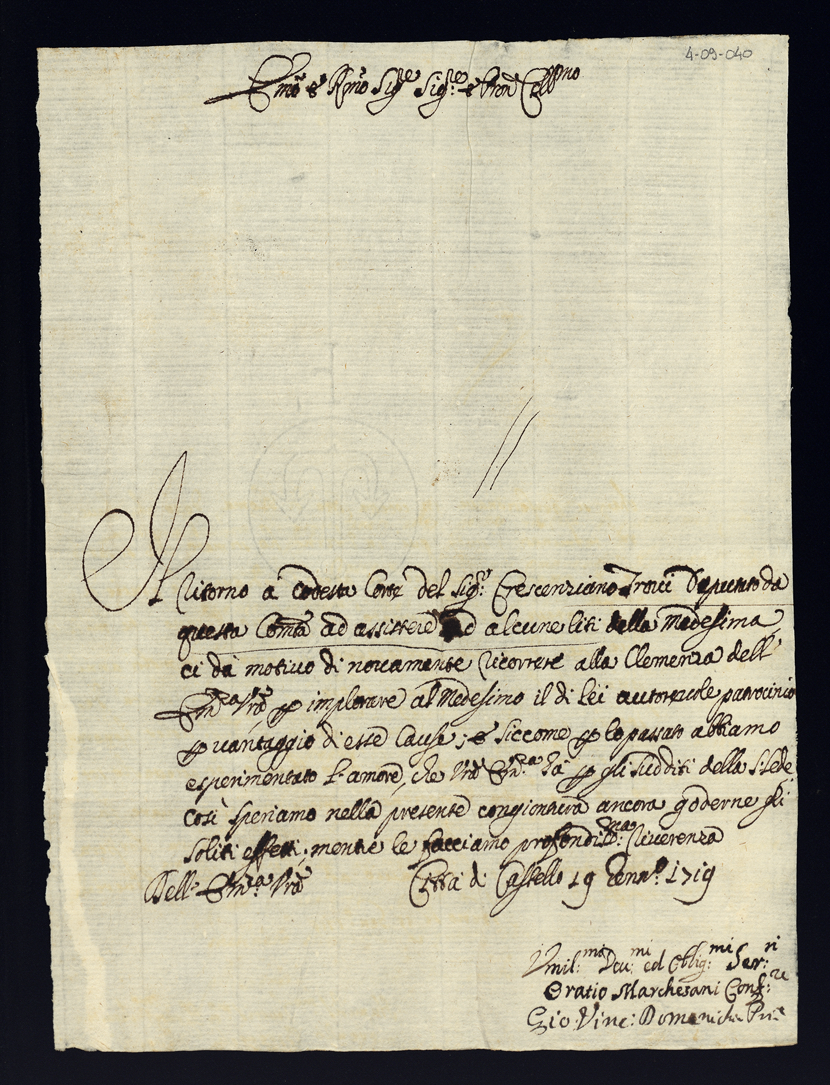 4-09-040
Em̃o e Rm̃o Sig.re Sig.re e Pron Coll.mo
Il ritorno à codesta Corte del Sig.r Crescenziano Deputato da
questa Com̃tà ad assistere ad alcune liti della Medesima
ci dà motivo di novamente ricorrere alla Clemenza dell'
Em.a Vrã p implorare al Medesimo il di lei autorevole patrocinio
p vantaggio di esse Cause; e siccome p lo passato abbiamo
esperimentato l'amore, che Vrã Em.a hà p gli sudditi della S. Sede
così speriamo nella presente congiontura ancora goderne gli
soliti effetti; mentre le facciamo profondiss.ma riverenza
Dell' Em.a Vrã Città di Castello 19 Genn.o 1719
Umil.mi Dev.mi ed Oblig.mi Ser.ri
Oratio Marchesani Conf.re
Gio: Vinc: Domenich